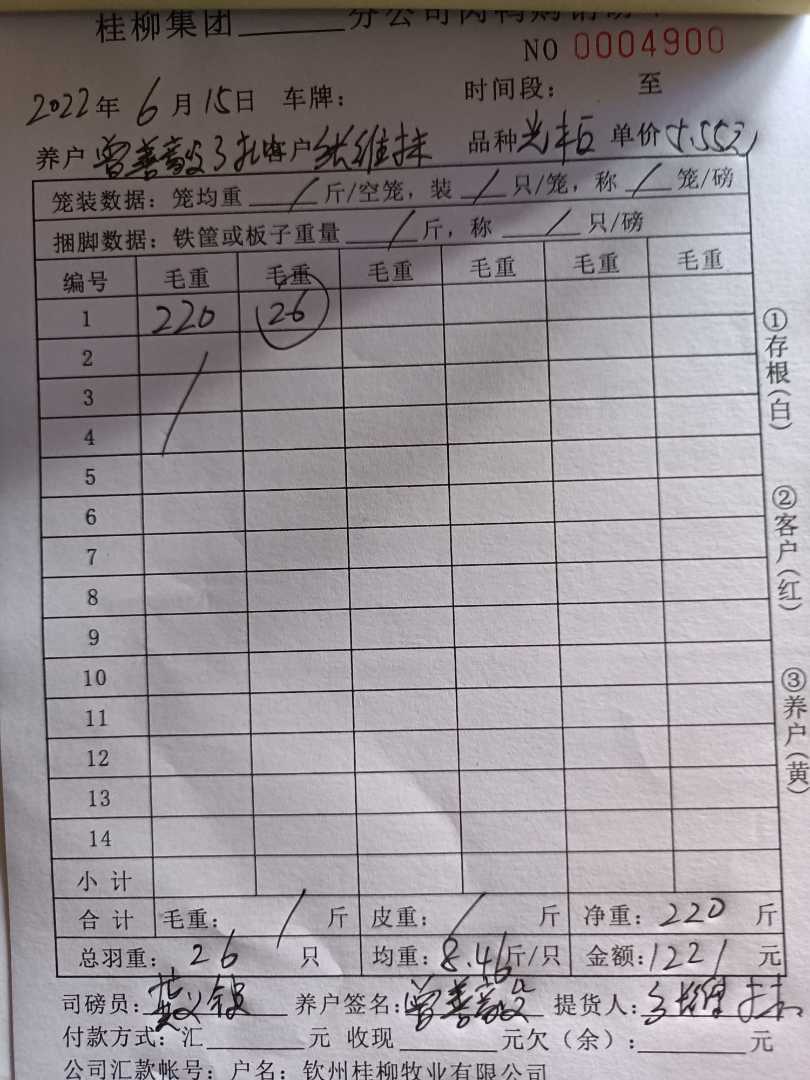 桂柳集团______分公司肉鸭购销磅单
NO 0004900
2022年6月15日 车牌： 时间段： 至
养户 曾善 客户 张维 品种 单价5.55元
笼装数据：笼均重 / 斤/空笼，装 / 只/笼，称 / 笼/磅
捆脚数据：铁筐或板子重量 / 斤，称 / 只/磅
编号 毛重 毛重 毛重 毛重 毛重 毛重
1 220 26
2 /
3
4
5
6
7
8
9
10
11
12
13
14
小 计
合 计 毛重： / 斤 皮重： / 斤 净重：220 斤
总羽重：26 只 均重：8.46斤/只 金额：1221 元
司磅员： 养户签名：曾善 提货人：张维
付款方式：汇______元 收现______元欠（余）：______元
公司汇款帐号：户名：钦州桂柳牧业有限公司
①存根（白）
②客户（红）
③养户（黄）